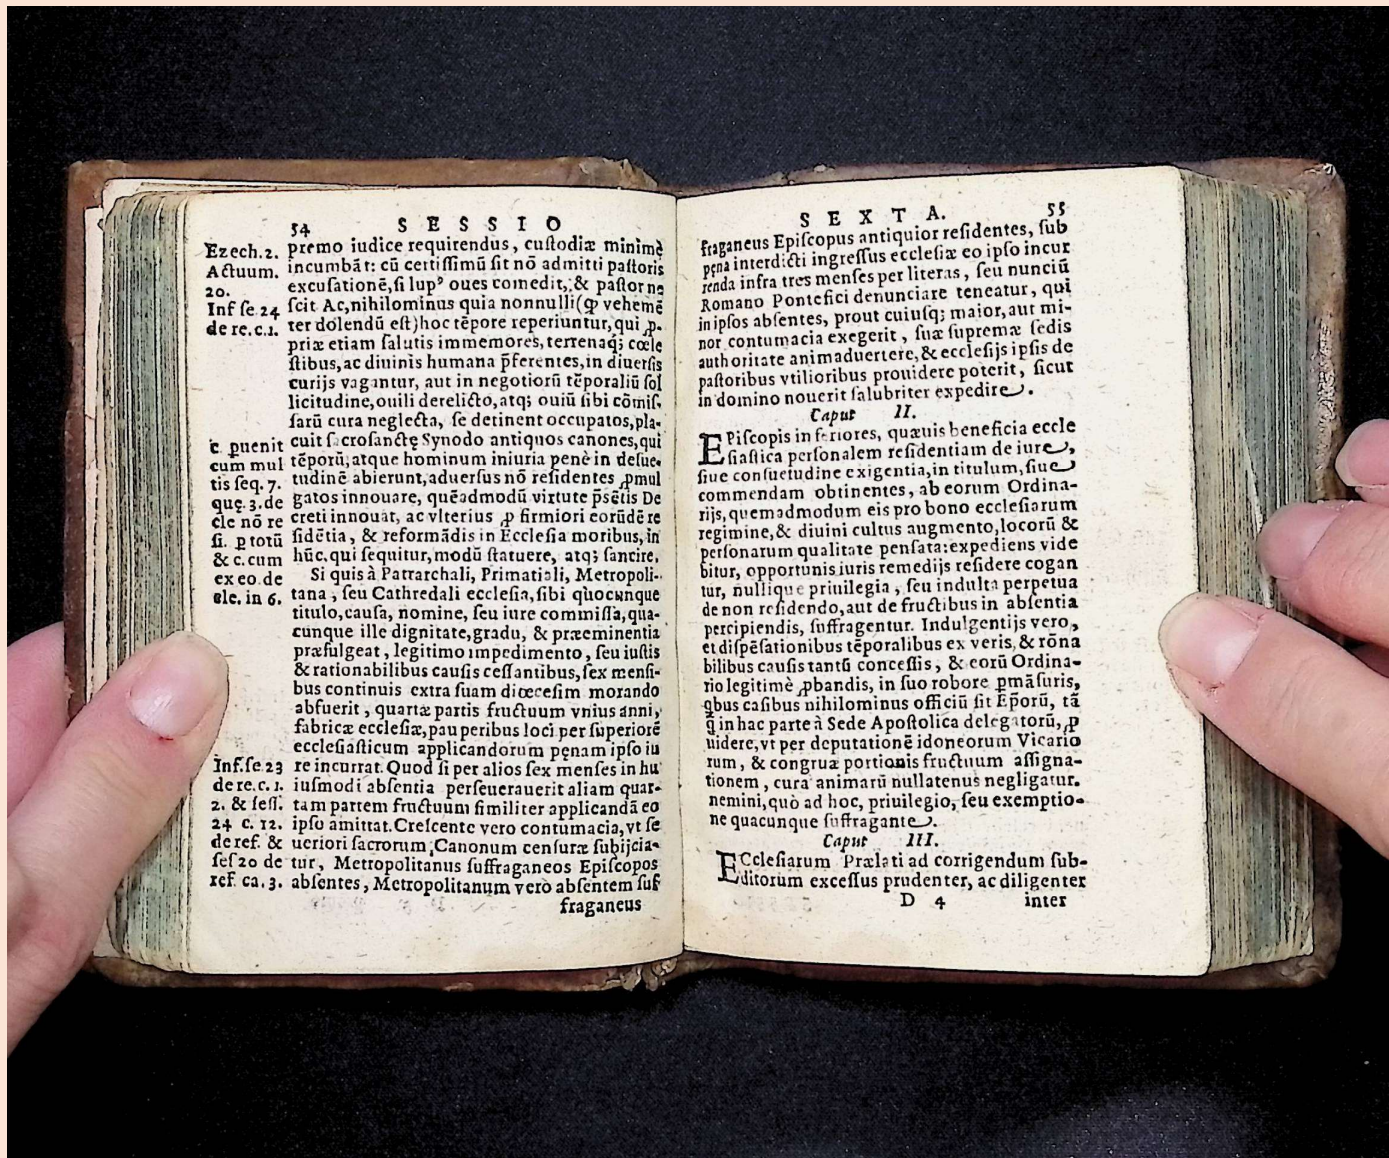 54 SESSIO
Ezech.2.
Actuum.
20.
Inf se 24
de re.c.1.
c ꝑuenit
cum mul
tis seq. 7.
quę. 3. de
cle nō re
si. ꝑ totū
& c. cum
ex eo. de
ele. in 6.
Inf.se.23
de re.c.1.
2. & sess.
24 c. 12.
de ref. &
ses 20 de
ref. ca. 3.
premo iudice requirendus, custodiæ minimè
incumbāt: cū certissimū sit nō admitti pastoris
excusationē, si lupꝰ oues comedit, & pastor ne
scit. Ac, nihilominus quia nonnulli (ꝙ vehemē
ter dolendū est) hoc tēpore reperiuntur, qui ꝓ-
priæ etiam salutis immemores, terrenaq; cœle
stibus, ac diuinis humana p̄ferentes, in diuersis
curijs vagantur, aut in negotiorū tēporaliū sol
licitudine, ouili derelicto, atq; ouiū sibi cōmis-
sarū cura neglecta, se detinent occupatos, pla-
cuit sacrosanctę Synodo antiquos canones, qui
tēporū, atque hominum iniuria penè in desue-
tudinē abierunt, aduersus nō residentes ꝓmul
gatos innouare, quēadmodū virtute p̄sētis De
creti innouat, ac vlterius ꝓ firmiori eorūdē re
sidētia, & reformādis in Ecclesia moribus, in
hūc, qui sequitur, modū statuere, atq; sancire.
Si quis à Patrarchali, Primatiali, Metropoli-
tana, seu Cathedrali ecclesia, sibi quocunque
titulo, causa, nomine, seu iure commissa, qua-
cunque ille dignitate, gradu, & præeminentia
præfulgeat, legitimo impedimento, seu iustis
& rationabilibus causis cessantibus, sex mensi-
bus continuis extra suam diœcesim morando
abfuerit, quartæ partis fructuum vnius anni,
fabricæ ecclesiæ, pauperibus loci per superiorē
ecclesiasticum applicandorum pęnam ipso iu
re incurrat. Quod si per alios sex menses in hu
iusmodi absentia perseuerauerit aliam quar-
tam partem fructuum similiter applicandā eo
ipso amittat. Crescente vero contumacia, vt se
ueriori sacrorum Canonum censuræ subijcia-
tur, Metropolitanus suffraganeos Episcopos
absentes, Metropolitanum verò absentem suf
fraganeus
SEXTA. 55
fraganeus Episcopus antiquior residentes, sub
pęna interdicti ingressus ecclesiæ eo ipso incur
renda infra tres menses per literas, seu nunciū
Romano Pontefici denunciare teneatur, qui
in ipsos absentes, prout cuiusq; maior, aut mi-
nor contumacia exegerit, suæ supremæ sedis
authoritate animaduertere, & ecclesijs ipsis de
pastoribus vtilioribus prouidere poterit, sicut
in domino nouerit salubriter expedire.
Caput II.
EPiscopis inferiores, quæuis beneficia eccle
siastica personalem residentiam de iure,
siue consuetudine exigentia, in titulum, siue
commendam obtinentes, ab eorum Ordina-
rijs, quemadmodum eis pro bono ecclesiarum
regimine, & diuini cultus augmento, locorū &
personarum qualitate pensata: expediens vide
bitur, opportunis iuris remedijs residere cogan
tur, nullique priuilegia, seu indulta perpetua
de non residendo, aut de fructibus in absentia
percipiendis, suffragentur. Indulgentijs vero,
et dispēsationibus tēporalibus ex veris, & rōna
bilibus causis tantū concessis, & eorū Ordina-
rio legitimè ꝓbandis, in suo robore ꝑmāsuris,
qbus casibus nihilominus officiū sit Ep̄orū, tā
q̄ in hac parte à Sede Apostolica delegatorū, ꝓ
uidere, vt per deputationē idoneorum Vicario
rum, & congruæ portionis fructuum assigna-
tionem, cura animarū nullatenus negligatur.
nemini, quò ad hoc, priuilegio, seu exemptio-
ne quacunque suffragante.
Caput III.
ECclesiarum Prælati ad corrigendum sub-
ditorum excessus prudenter, ac diligenter
D 4 inter